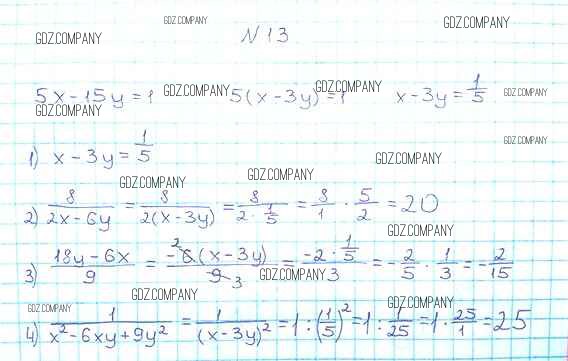 GDZ.COMPANY GDZ.COMPANY GDZ.COMPANY
N 13
5x - 15y = 1 GDZ.COMPANY 5(x - 3y) = 1 GDZ.COMPANY x - 3y = 1/5 GDZ.COMPANY
GDZ.COMPANY
GDZ.COMPANY
1) x - 3y = 1/5 GDZ.COMPANY
GDZ.COMPANY GDZ.COMPANY
2) 8/(2x - 6y) = 8/(2(x - 3y)) = 8/(2 · 1/5) = 8/1 · 5/2 = 20
GDZ.COMPANY
3) (18y - 6x)/9 = (-6(x - 3y))/9 = (-2 · 1/5)/3 = -2/5 · 1/3 = -2/15
2 3 GDZ.COMPANY
GDZ.COMPANY GDZ.COMPANY GDZ.COMPANY
4) 1/(x² - 6xy + 9y²) = 1/(x - 3y)² = 1 : (1/5)² = 1 : 1/25 = 1 · 25/1 = 25